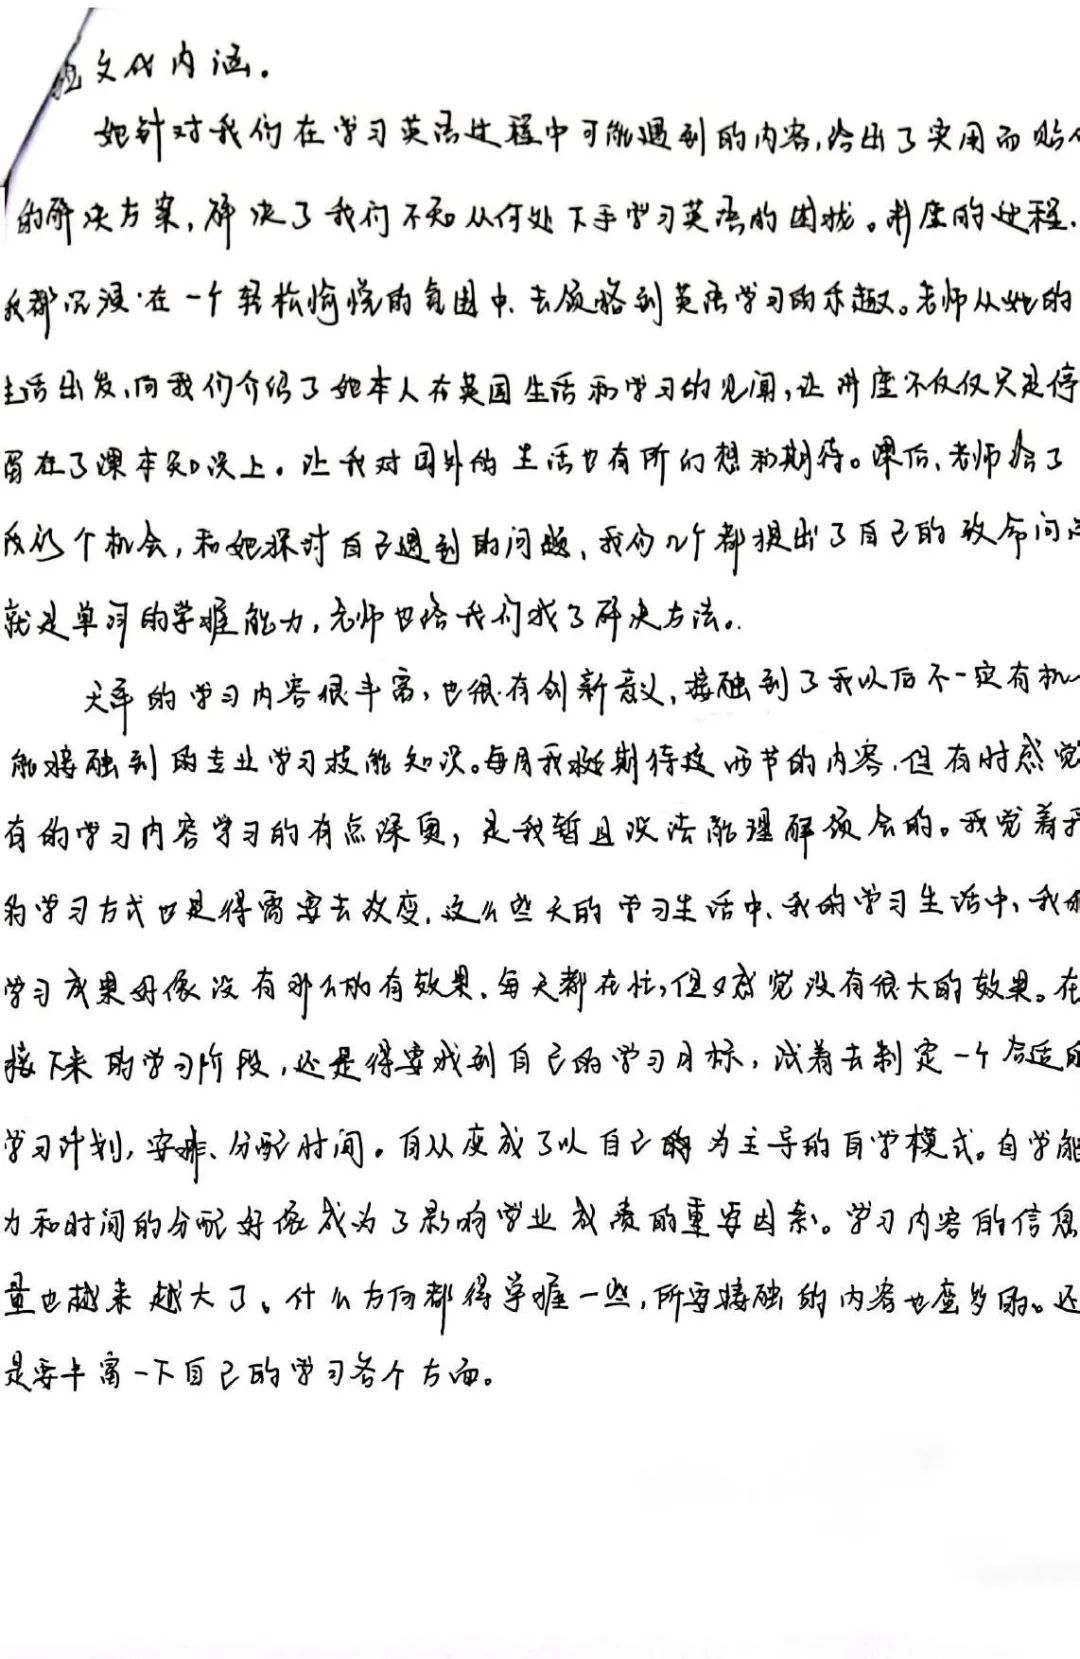 文化内涵。
她针对我们在学习英语过程中可能遇到的内容,给出了实用而贴
的解决方案,解决了我们不知从何处下手学习英语的困扰。讲座的过程,
我都沉浸在一个轻松愉悦的氛围中,去领略到英语学习的乐趣。老师从她的
生活出发,向我们介绍了她本人在英国生活和学习的见闻,让讲座不仅仅只是停
留在了课本知识上。让我对国外的生活也有所幻想和期待。课后,老师给了
我们个机会,和她探讨自己遇到的问题,我们几个都提出了自己的致命问
就是单词的掌握能力,老师也给我们找了解决方法。
的学习内容很丰富,也很有创新意义,接触到了我以后不一定有机
能接触到的专业学习技能知识。每周我挺期待这两节的内容,但有时感觉
有的学习内容学习的有点深奥,是我暂且没法能理解领会的。我觉着我
的学习方式也是得需要去改变,这么些天的学习生活中,我的学习生活中,我的
学习成果好像没有那么的有效果,每天都在忙,但又感觉没有很大的效果。在
接下来的学习阶段,还是得要找到自己的学习目标,试着去制定一个合适的
学习计划,安排、分配时间。自从变成了以自己的为主导的自学模式。自学能
力和时间的分配好像成为了影响学业成绩的重要因素。学习内容的信息
量也越来越大了。什么方向都得掌握一些,所要接触的内容也蛮多的。还
是要丰富一下自己的学习各个方面。